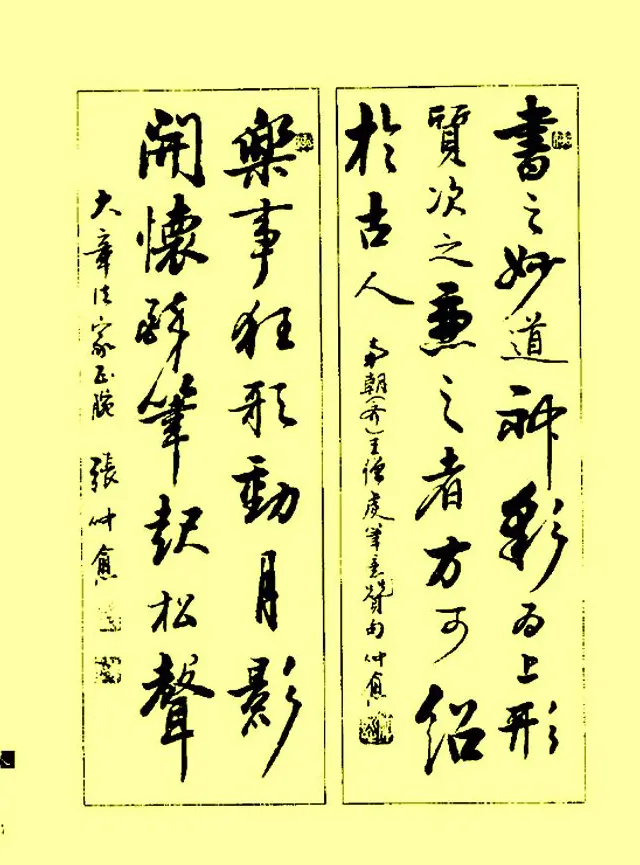 書之妙道神彩为上形
質次之兼之者方可紹
於古人
南朝(齐)王僧虔筆意贊句仲愈
樂事狂歌動月影
開懷醉筆起松聲
大章法家正腕 張仲愈